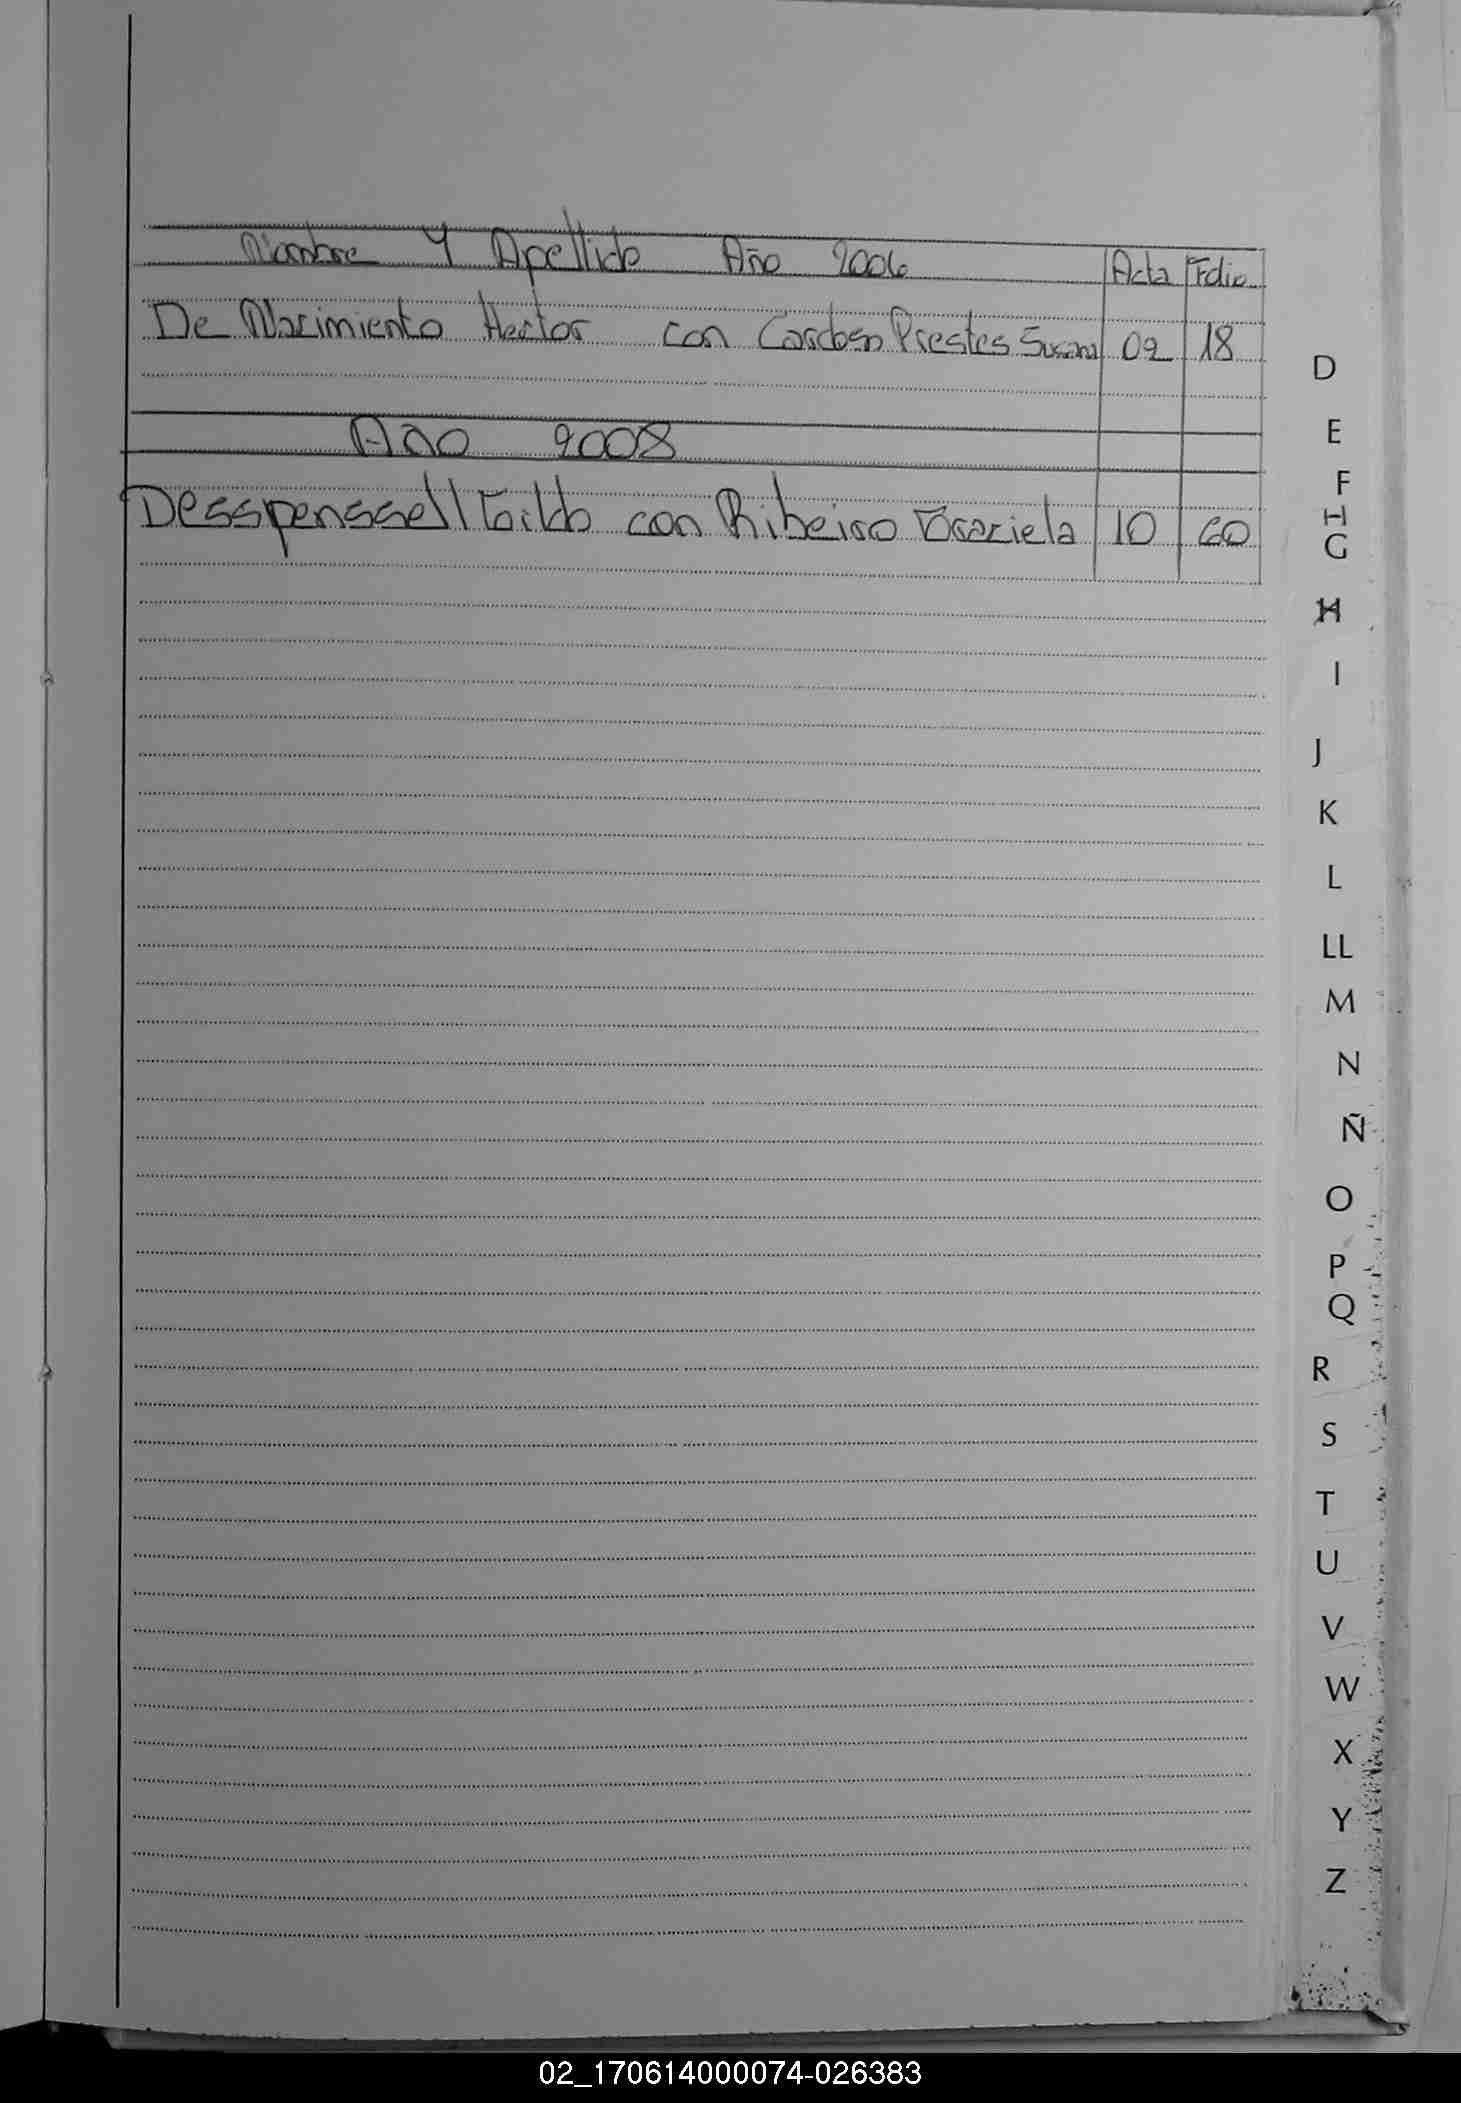 Nombre Y Apellido Año 2006 Acta Folio
De Nacimiento Hector con Cardoso Prestes Susana 02 18
Año 2008
Desspenssell con Ribeiro Graciela 10 60
D
E
F
H
G
H
I
J
K
L
LL
M
N
Ñ
O
P
Q
R
S
T
U
V
W
X
Y
Z
02_170614000074-026383